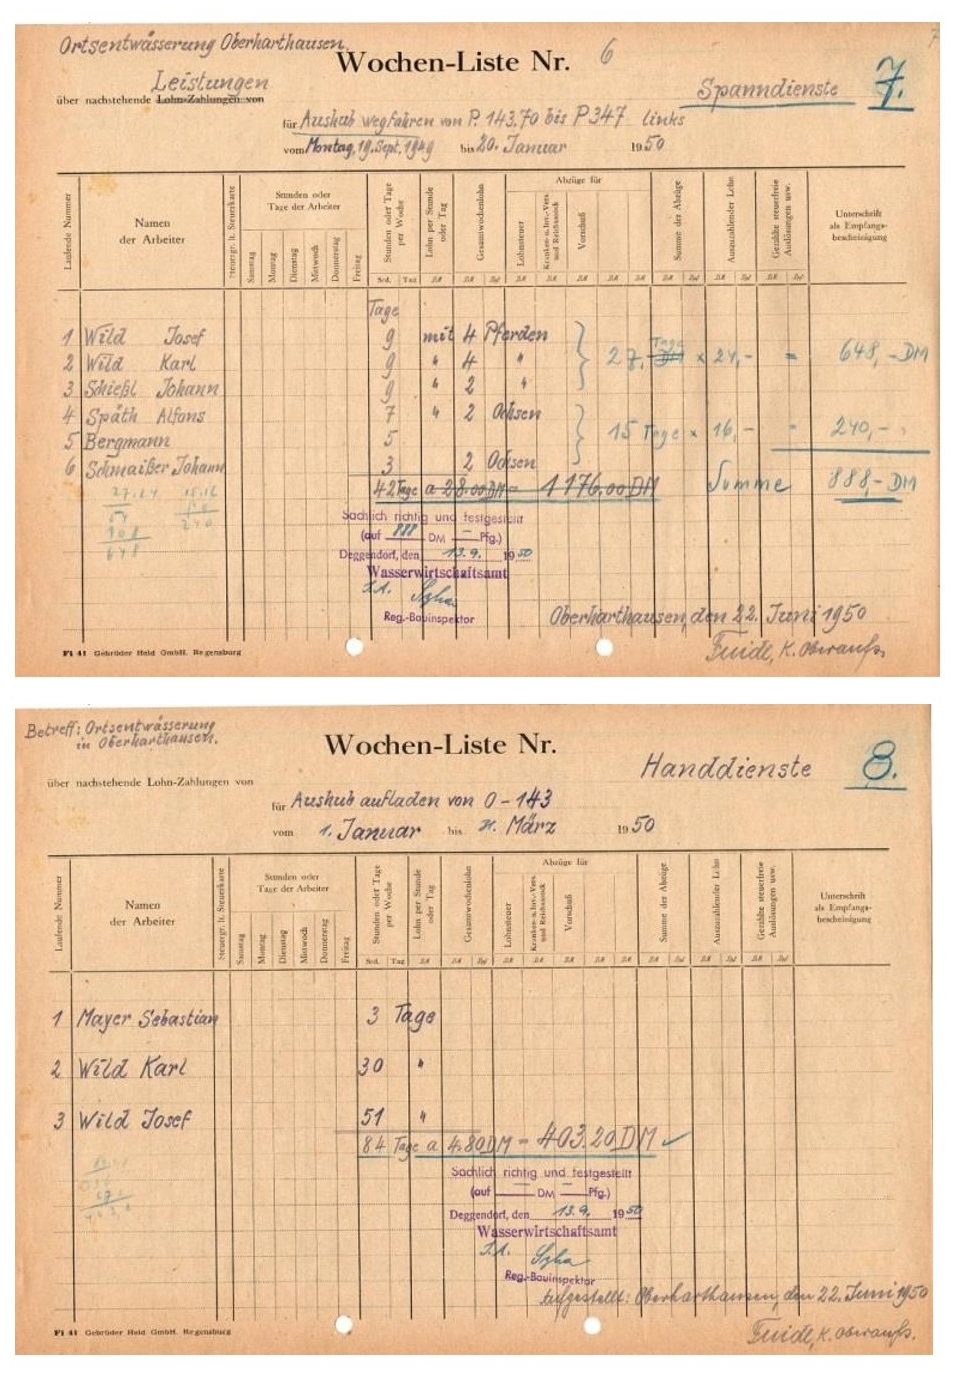 Ortsentwässerung Oberharthausen
Wochen-Liste Nr. 6
Leistungen
über nachstehende Lohn-Zahlungen von
Spanndienste 7.
für Aushub wegfahren von P. 143.70 bis P 347 links
vom Montag, 19. Sept. 1949 bis 20. Januar 1950
Laufende Nummer
Namen der Arbeiter
Steuergr. lt. Steuerkarte
Stunden oder Tage der Arbeiter
Samstag Montag Dienstag Mittwoch Donnerstag Freitag
Stunden oder Tage per Woche
Lohn per Stunde oder Tag
Gesamtwochenlohn
Abzüge für
Lohnsteuer
Kranken-u. Inv.-Vers. und Reichsstock
Vorschuß
Summe der Abzüge
Auszuzahlender Lohn
Gezahlte steuerfreie Auslösungen usw.
Unterschrift als Empfangs-bescheinigung
Tage
1 Wild Josef 9 mit 4 Pferden
2 Wild Karl 9 " 4 " 27 Tage × 24,- = 648,- DM
3 Schießl Johann 9 " 2 "
4 Späth Alfons 7 " 2 Ochsen
5 Bergmann 5 15 Tage × 16,- = 240,-
6 Schmaißer Johann 3 2 Ochsen
42 Tage a 28.00 DM = 1176.00 DM Summe 888,- DM
27.24 15.16
54
108
648
240
Sachlich richtig und festgestellt
(auf 888 DM — Pfg.)
Deggendorf, den 13.9. 1950
Wasserwirtschaftsamt
I.A.
Reg.-Bauinspektor
Oberharthausen, den 22. Juni 1950
Fi 41 Gebrüder Held GmbH. Regensburg
Betreff: Ortsentwässerung
in Oberharthausen.
Wochen-Liste Nr.
über nachstehende Lohn-Zahlungen von
Handdienste 8.
für Aushub aufladen von 0-143
vom 1. Januar bis 21. März 1950
Laufende Nummer
Namen der Arbeiter
Steuergr. lt. Steuerkarte
Stunden oder Tage der Arbeiter
Samstag Montag Dienstag Mittwoch Donnerstag Freitag
Stunden oder Tage per Woche
Lohn per Stunde oder Tag
Gesamtwochenlohn
Abzüge für
Lohnsteuer
Kranken-u. Inv.-Vers. und Reichsstock
Vorschuß
Summe der Abzüge
Auszuzahlender Lohn
Gezahlte steuerfreie Auslösungen usw.
Unterschrift als Empfangs-bescheinigung
1 Mayer Sebastian 3 Tage
2 Wild Karl 30 "
3 Wild Josef 51 "
84 Tage a 4.80 DM = 403.20 DM
Sachlich richtig und festgestellt
(auf — DM — Pfg.)
Deggendorf, den 13.9. 1950
Wasserwirtschaftsamt
I.A.
Reg.-Bauinspektor
Aufgestellt: Oberharthausen, den 22. Juni 1950
Fi 41 Gebrüder Held GmbH. Regensburg